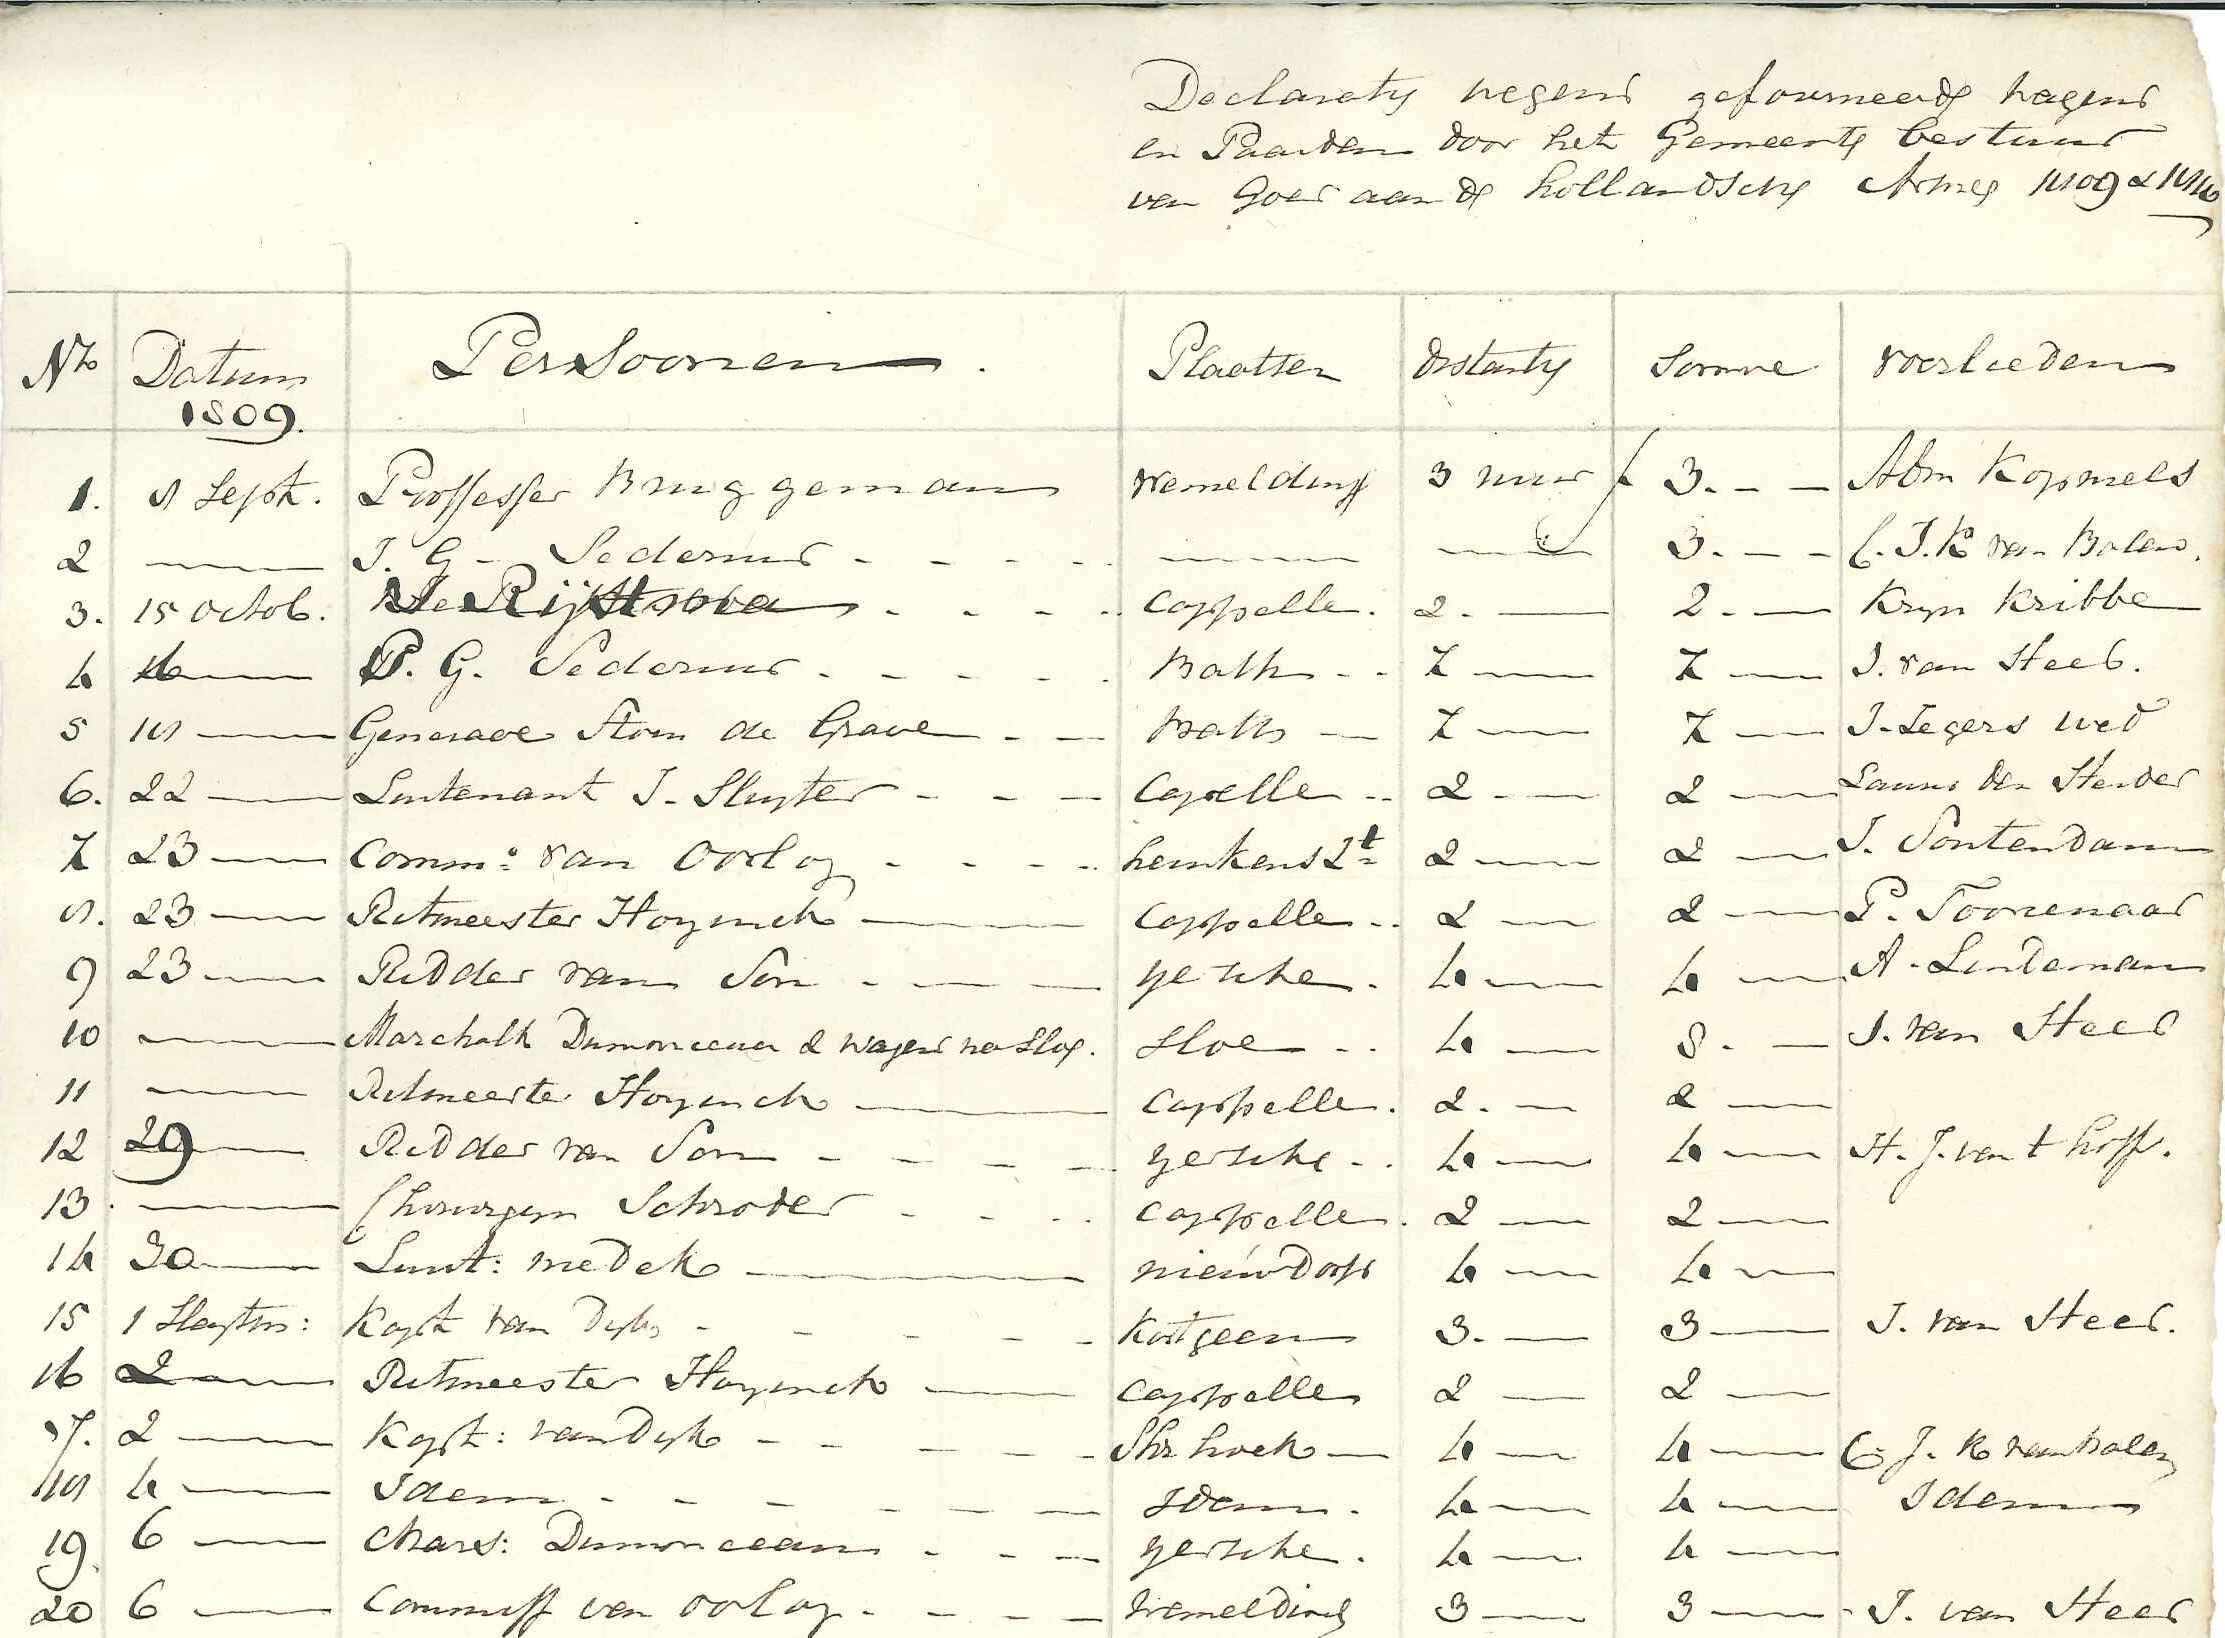 Declaraty wegens gefourneerde wagens
en Paarden door het Gemeente bestuur
van Goes aan de hollandsche Armee 1809 & 1810
No Datum 1809. Persoonen Plaatsen distanty Somme voerlieden
1. 8 Sept. Proffesser Bruggemans Wemelding 3 uuur f 3. - - Abm Kopmels
2 —— J. G. Sedernus - - - —— —— 3. - - C. J. K van Balen.
3. 15 octob. De Rijkstra - - - Cappelle. 2. — 2. — Kryn Kribbe
4 16 —— P. G. Sedernus - - - Bath - - 7 — 7 — J. van Steeb.
5 18 —— Generaal Stom de Grave - - Bath — 7 — 7 — J. Zegers wed
6. 22 —— Luitenant J. Sluyter - - - Capelle - - 2 - — 2 — Laurus den Herder
7 23 —— Comm: van Oorlog - - - heinkens2t 2 — 2 — J. Sontendam
8. 23 —— Ritmeester Hoyinck —— Cappelle - - 2 — 2 — P. Toorenaar
9 23 —— Ridder van Son - — — yersche. 4 — 4 — A. Lindeman
10 —— Marchalk Dumonceau 2 wagens na Sloe. Sloe - - 4 — 8. — J. van Steeb
11 —— Ritmeester Hoyinck —— Cappelle. 2. — 2 —
12 29 —— Ridder van Son - - - yersche - - 4 — 4 — H. J. van t hoff.
13. —— Chirurgyn Schroder - - - Cappelle. 2 — 2 —
14 30 —— Luit: medek —— nieuwdorp 4 — 4 —
15 1 Slagtm: Kapt van Dyk - - - Kortgeen 3. — 3 — J. van Steeb.
16 2 —— Ritmeester Hoyinck —— Cappelle 2 — 2 —
17. 2 —— Kapt: van Dyk - - - Shr hoek — 4 — 4 — C. J. K van balen
18 4 —— Idem - - - Idem. 4 — 4 — Idem
19. 6 —— Mars: Dumonceau - - - yersche. 4 — 4 —
20 6 —— Commiss van oorlog - - - Wemelding 3 — 3 — J. van Steeb